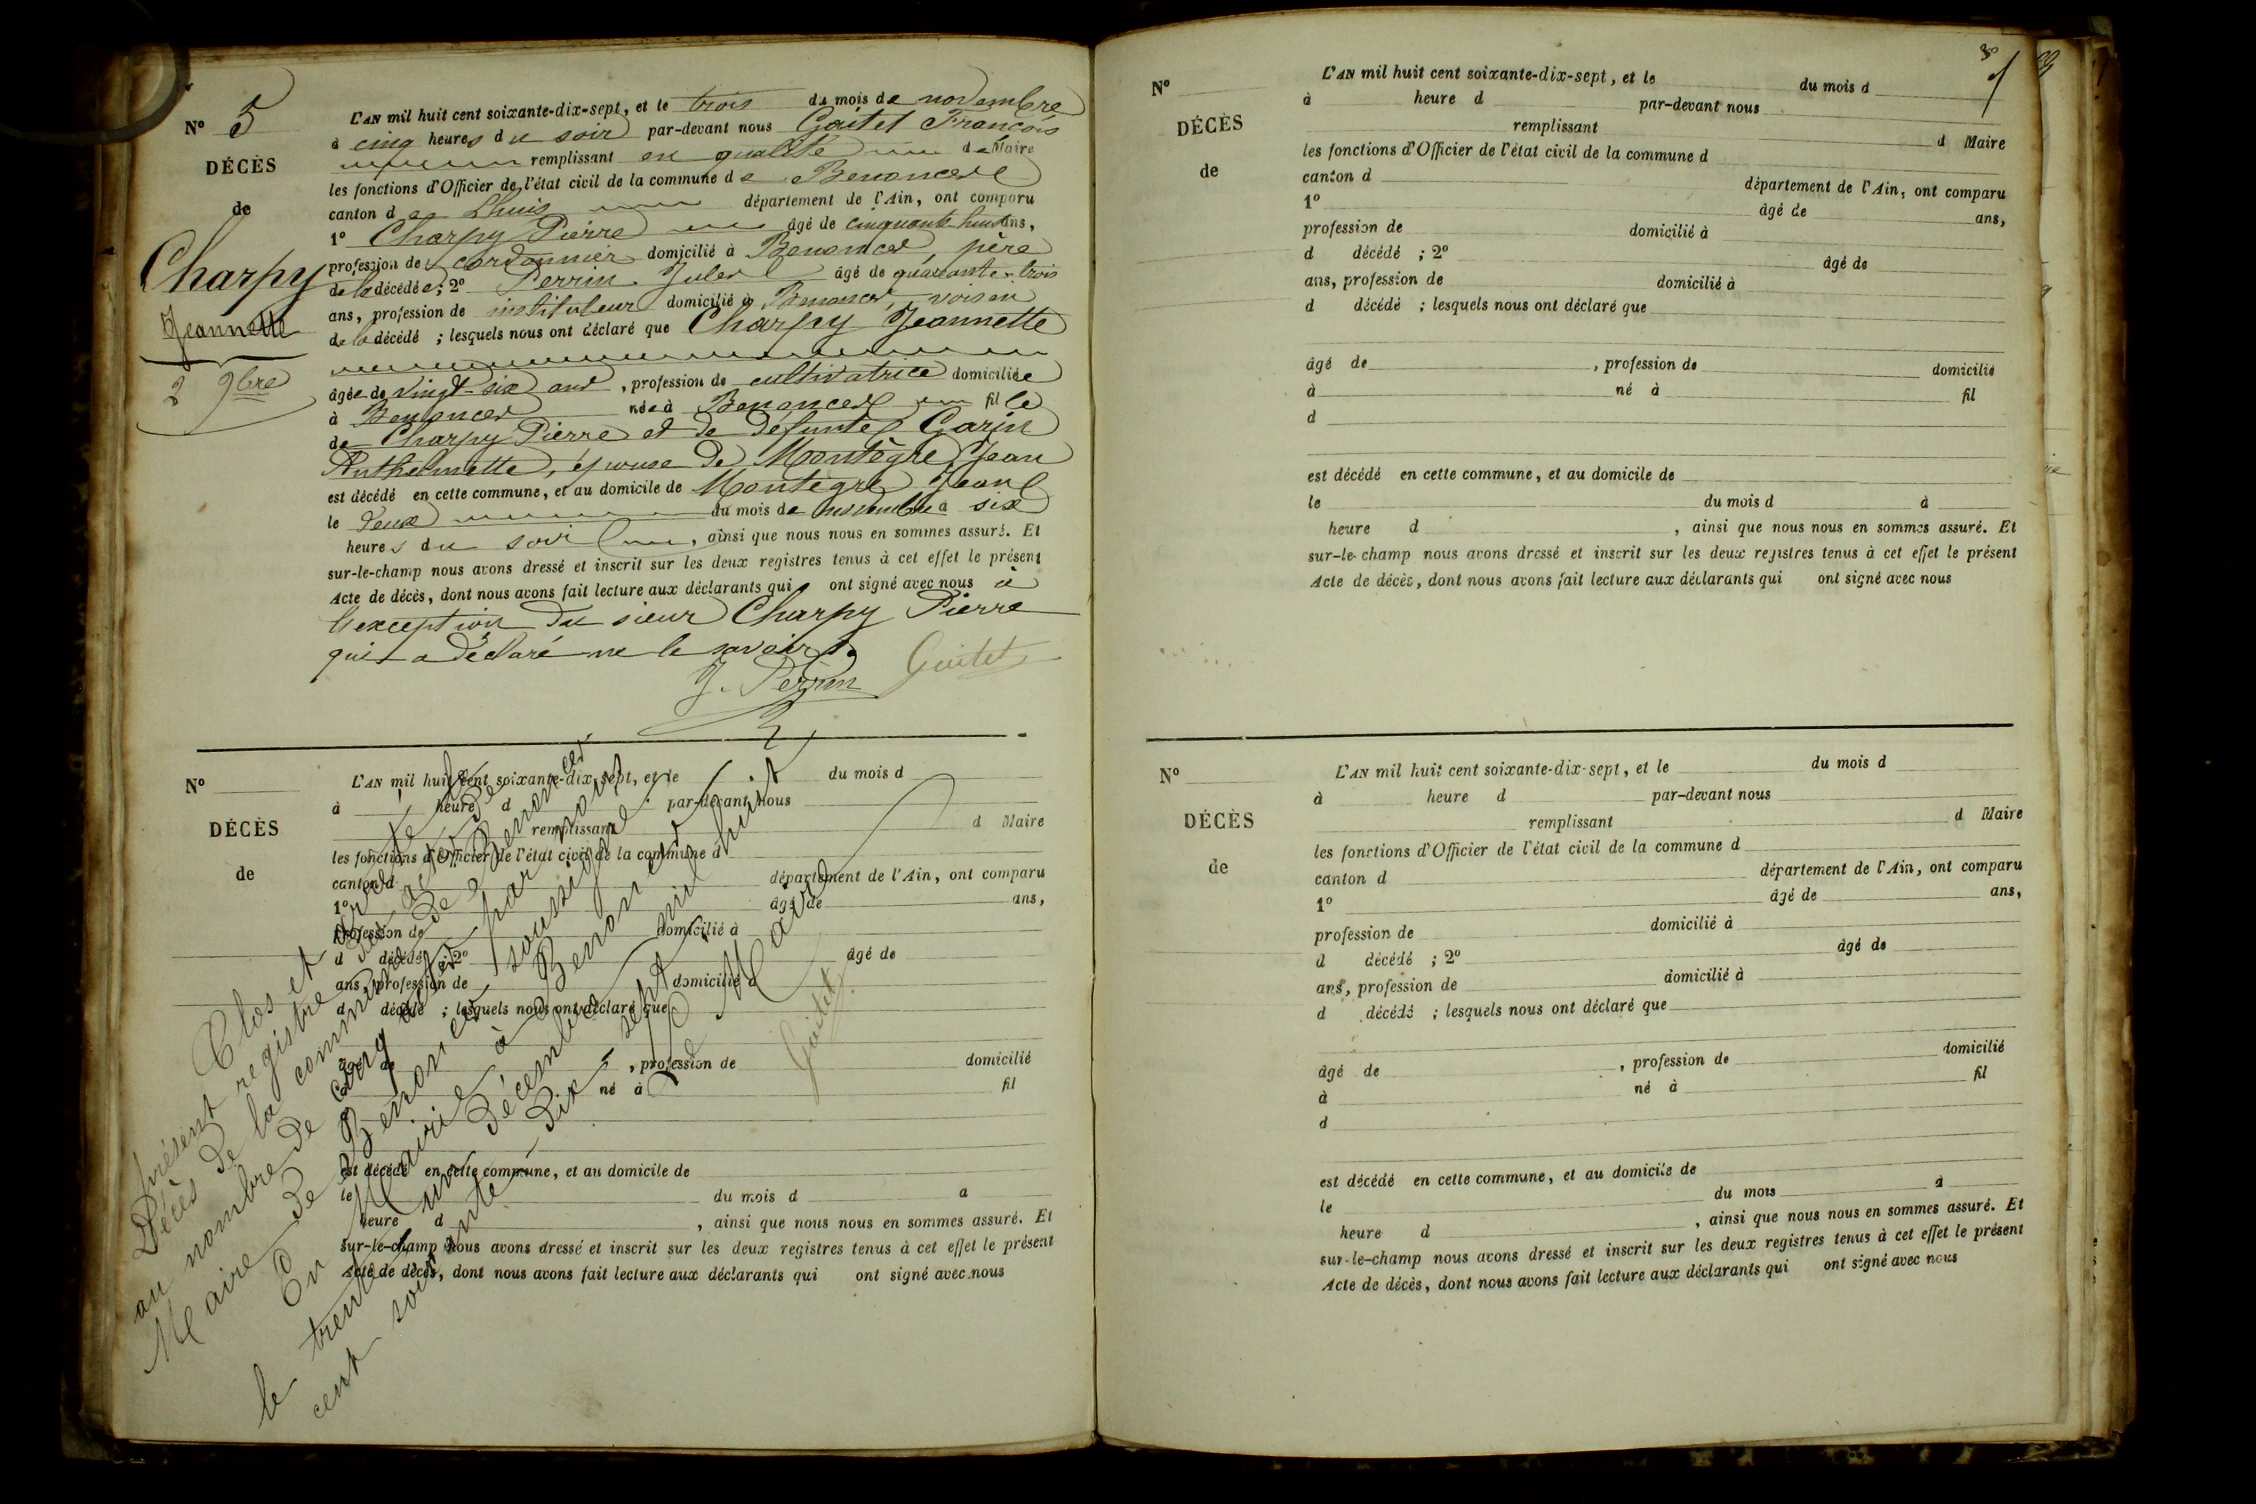 N° 5
DÉCÈS
de
Charpy
Jeannette
2 9bre
L'AN mil huit cent soixante-dix-sept, et le trois du mois de novembre
à cinq heures du soir par-devant nous Goitet François
remplissant en qualité de Maire
les fonctions d'Officier de l'état civil de la commune de Benonces
canton de Lhuis département de l'Ain, ont comparu
1° Charpy Pierre âgé de cinquante huit ans,
profession de cordonnier domicilié à Benonces père
de la décédée; 2° Perrin Jules âgé de quarante-trois
ans, profession de instituteur domicilié à Benonces, voisin
de la décédé ; lesquels nous ont déclaré que Charpy Jeannette
âgée de vingt-six ans, profession de cultivatrice domiciliée
à Benonces née à Benonces fille
de Charpy Pierre et de défunte Garin
Anthelmette, épouse de Montègre Jean
est décédé en cette commune, et au domicile de Montègre Jean
le deux du mois de novembre à six
heures du soir, ainsi que nous nous en sommes assuré. Et
sur-le-champ nous avons dressé et inscrit sur les deux registres tenus à cet effet le présent
Acte de décès, dont nous avons fait lecture aux déclarants qui ont signé avec nous à
l'exception du sieur Charpy Pierre
qui a déclaré ne le savoir.
J. Perrin Goitet
N°
DÉCÈS
de
L'AN mil huit cent soixante-dix-sept, et le du mois d
à heure d par-devant nous
remplissant d Maire
les fonctions d'Officier de l'état civil de la commune d
canton d département de l'Ain, ont comparu
1° âgé de ans,
profession de domicilié à
d décédé ; 2° âgé de
ans, profession de domicilié à
d décédé ; lesquels nous ont déclaré que
âgé de , profession de domicilié
né à fil
est décédé en cette commune, et au domicile de
le du mois d à
heure d , ainsi que nous nous en sommes assuré. Et
sur-le-champ nous avons dressé et inscrit sur les deux registres tenus à cet effet le présent
Acte de décès, dont nous avons fait lecture aux déclarants qui ont signé avec nous
Clos et arrêté le
présent registre des actes de
Décès de la commune de Benonces
au nombre de cinq actes par nous
Maire de Benonces soussigné.
En Mairie à Benonces
le trente un décembre mil huit
cent soixante dix sept.
Le Maire
Goitet
N°
DÉCÈS
de
L'AN mil huit cent soixante-dix-sept, et le du mois d
à heure d par-devant nous
remplissant d Maire
les fonctions d'Officier de l'état civil de la commune d
canton d département de l'Ain, ont comparu
1° âgé de ans,
profession de domicilié à
d décédé ; 2° âgé de
ans, profession de domicilié à
d décédé ; lesquels nous ont déclaré que
âgé de , profession de domicilié
à né à fil
d
est décédé en cette commune, et au domicile de
le du mois d à
heure d , ainsi que nous nous en sommes assuré. Et
sur-le-champ nous avons dressé et inscrit sur les deux registres tenus à cet effet le présent
Acte de décès, dont nous avons fait lecture aux déclarants qui ont signé avec nous
N°
DÉCÈS
de
L'AN mil huit cent soixante-dix-sept, et le du mois d
à heure d par-devant nous
remplissant d Maire
les fonctions d'Officier de l'état civil de la commune d
canton d département de l'Ain, ont comparu
1° âgé de ans,
profession de domicilié à
d décédé ; 2° âgé de
ans, profession de domicilié à
d décédé ; lesquels nous ont déclaré que
âgé de , profession de domicilié
à né à fil
d
est décédé en cette commune, et au domicile de
le du mois à
heure d , ainsi que nous nous en sommes assuré. Et
sur-le-champ nous avons dressé et inscrit sur les deux registres tenus à cet effet le présent
Acte de décès, dont nous avons fait lecture aux déclarants qui ont signé avec nous